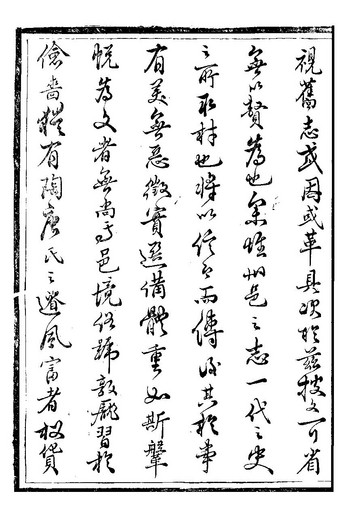 視舊志或因或革具次於茲披文可省
無以贅為也余惟州邑之志一代之史
之所取材也將以信今而傳後其於事
有美無惡徵實選備體重如斯鞶
帨為文者無尚焉邑境俗號敦龐習於
儉嗇猶有陶唐氏之遺風富者权貨